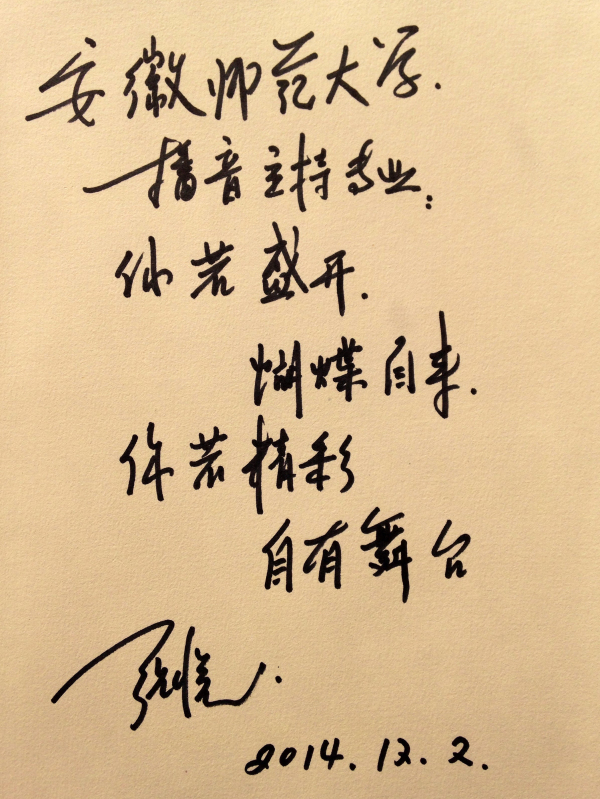 安徽师范大学.
播音主持专业:
你若盛开.
蝴蝶自来.
你若精彩
自有舞台
2014.12.2.